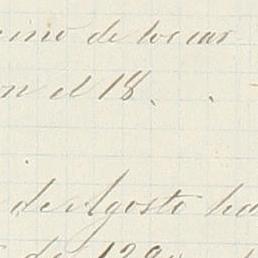 de tocar
n el 18.
de Agosto ha
de 1890